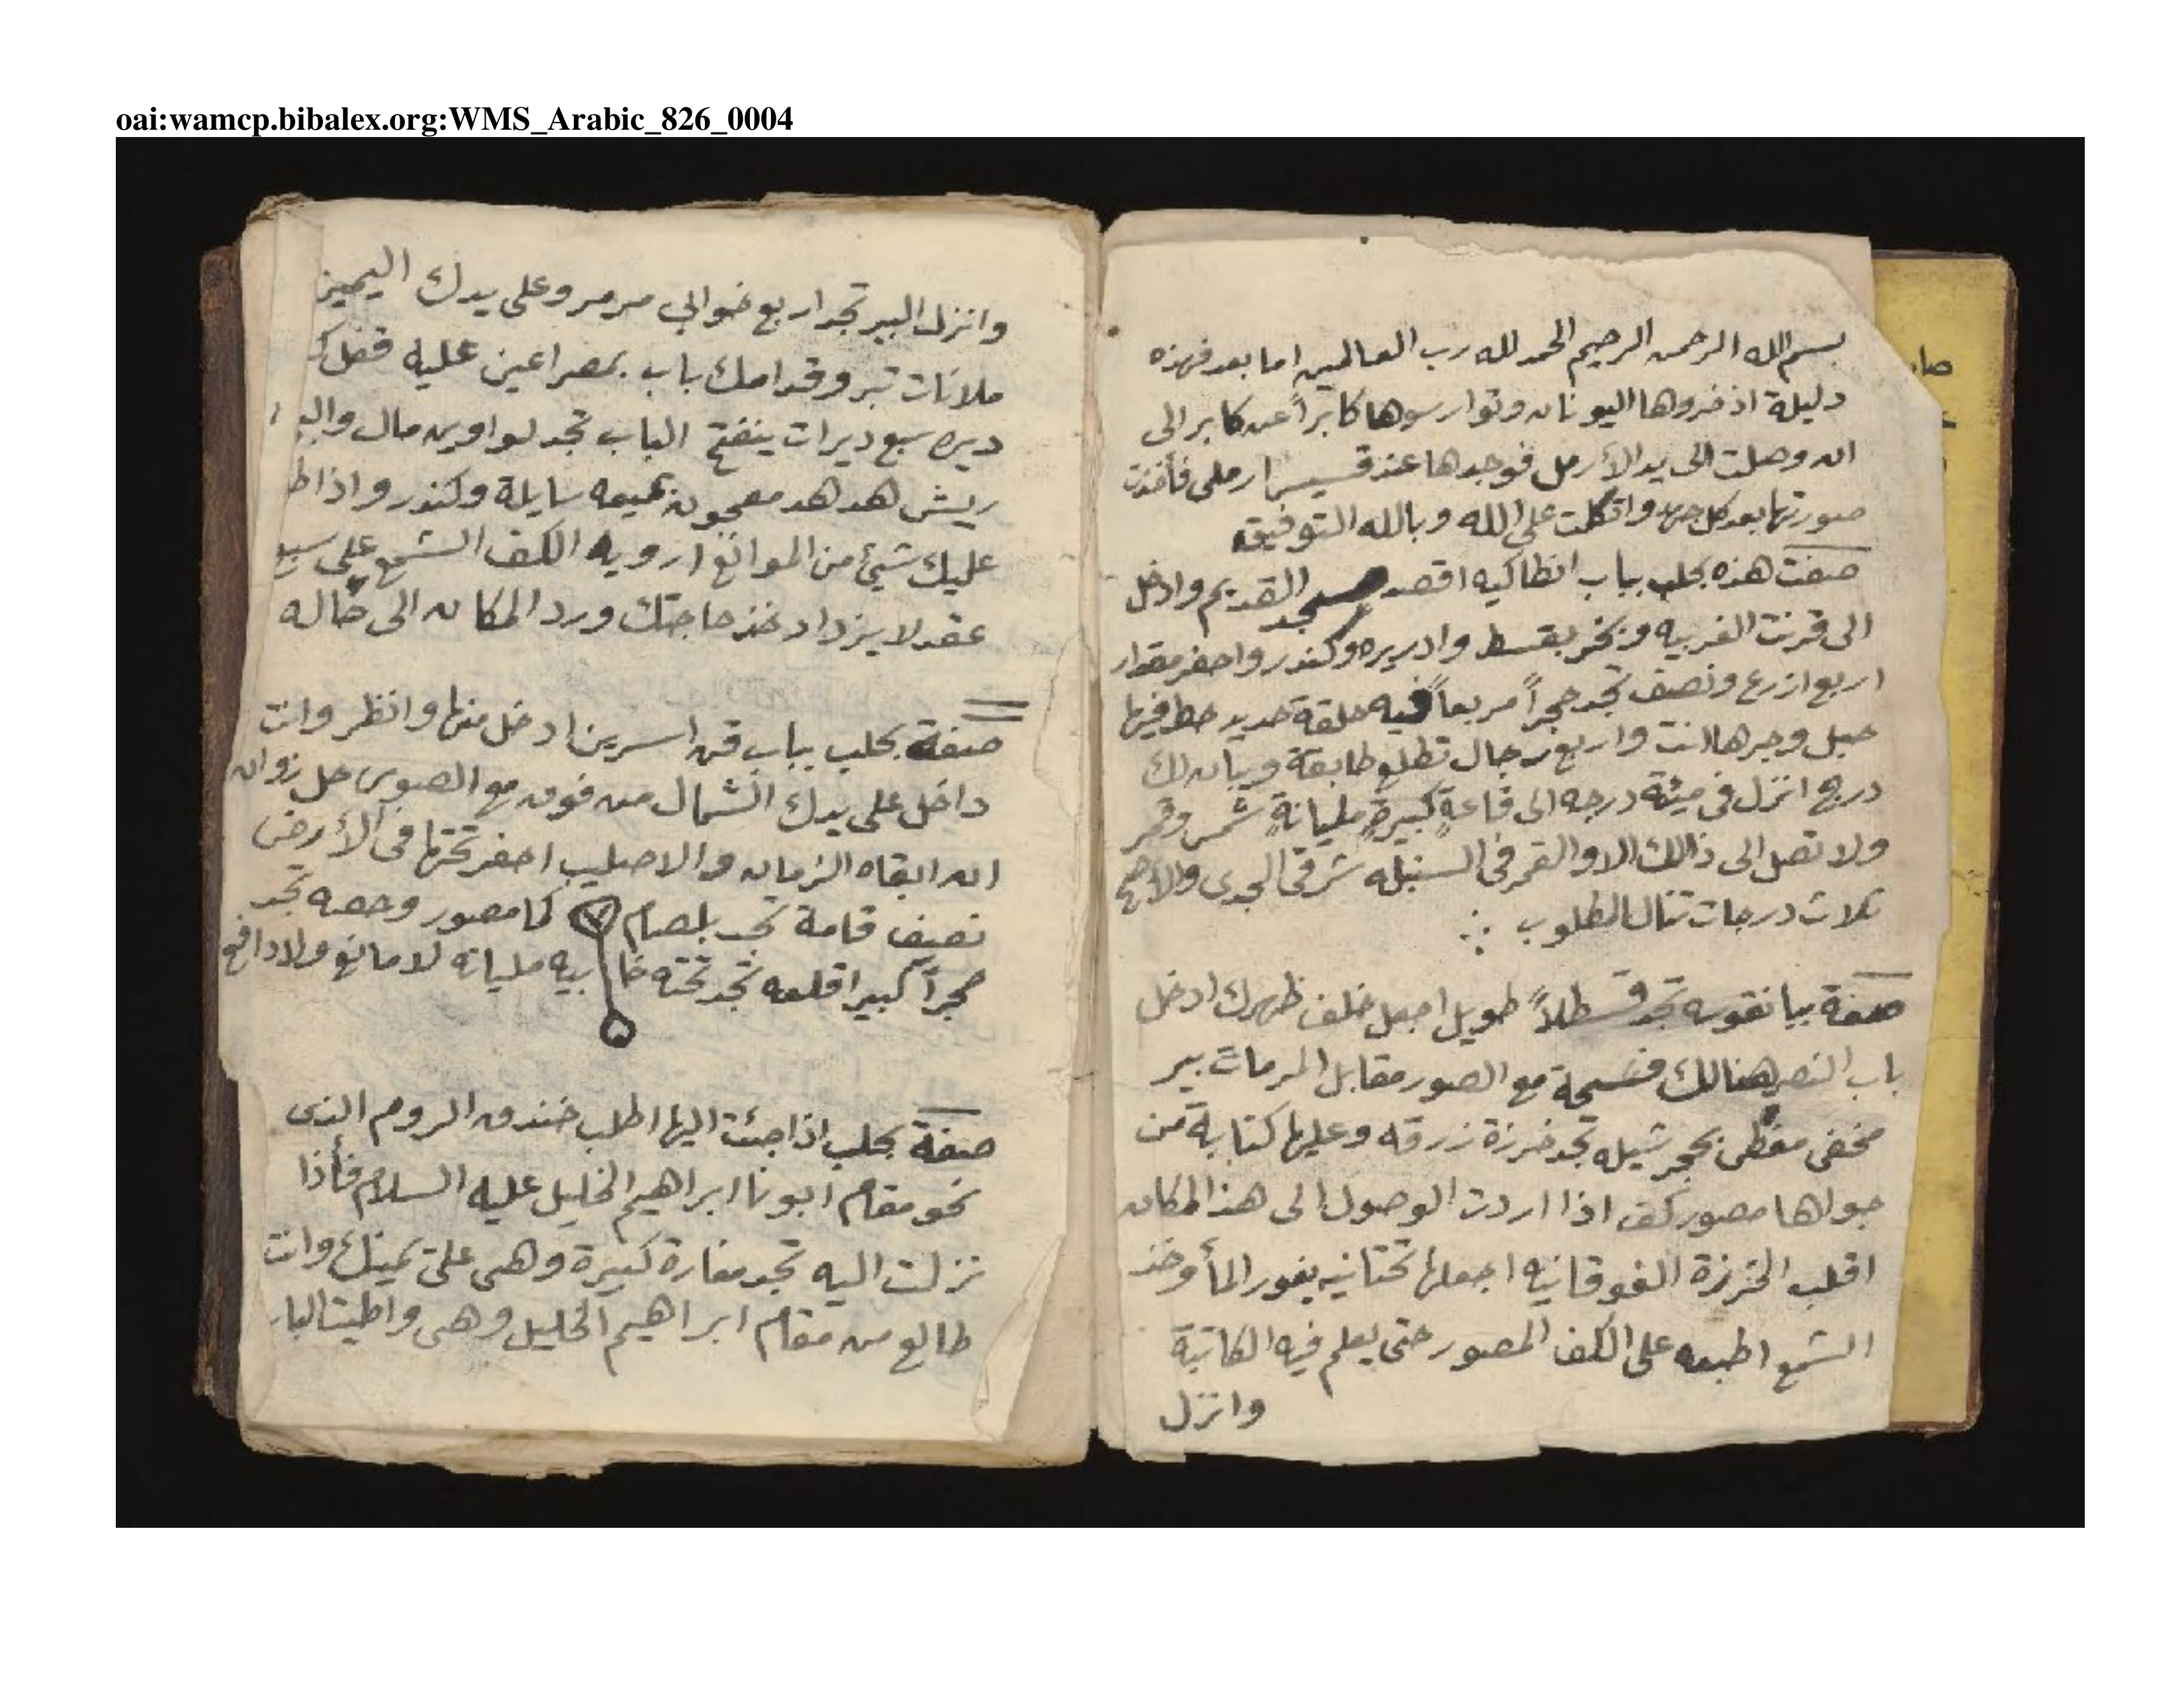 oai:wamcp.bibalex.org:WMS_Arabic_826_0004
بسم الله الرحمن الرحيم الحمد لله رب العالمين اما بعد فهذه
دليلة اذخروها اليونان وتوارسوها كابراً عن كابر الى
ان وصلت الى يد الأرمل فوجدها عند قسيس ارملى فأخذت
صورتها بعد كل جهد واتكلت على الله وبالله التوفيق
صفت هذه بحلب بباب انطاكيه اقصد مسجد القديم وادخل
الى قرنت الغربيه وبخر بقسط وادريره وكندر واحفر مقدار
اربع ازرع ونصف تجد حجراً مربعاً فيه حلقة حديد حط فيها
حبل وجرها انت واربع رجال تطلع طابقة ويبان لك
درج انزل فى ميئة درجه الى قاعةٍ كبيرةٍ مليانةٍ شمس وقمر
ولا تصل الى ذالك الا والقمر فى السنبله شرقى الجدى والأصح
تلات درجات تنال المطلوب
صفة ببانقوسه تجد قسطلاً طويل اجعل خلف ظهرك ادخل
باب النصر هنالك فسحة مع الصور مقابل المرمات بير
مخفى مغطى بحجر شيله تجد خرزة زرقه وعليها كتابة من
جواها مصور كف اذا اردت الوصول الى هذا المكان
اقلب الخرزة الفوقانيه اجعلها تحتانيه يغور المأ وخذ
الشمع اطبعه على الكف المصور حتى يعلم فيه الكاتبة
وانزل
وانزل البير تجد اربع خوابي مرمر وعلى يدك اليمين
ملانات تبر وقدامك باب بمصراعين عليه قفل
ديره سبع ديرات ينفتح الباب تجد لواوين مال
ريش هدهد معجون بميعه سايلة وكندر واذا
عليك شيئ من الموانع ارويه الكف الشمع على سبع
عقد لا يزداد خذ حاجتك ورد المكان الى حاله
صفة بحلب بباب قن اسرين ادخل منها وانظر وانت
داخل على يدك الشمال من فوق مع الصوى حل زوان
ان ابقاه الزمان والا صليب احفر تحتها فى الأرض
نصيف قامة تجد بلصام كما مصور وحصه تجد
حجراً كبير اقلعه تجد تحته خابيه مليانه لا مانع ولا دافع
صفة بحلب اذا جئت اليها اطلب خندق الروم الذى
نحو مقام ابونا ابراهيم الخليل عليه السلام فأذا
نزلت اليه تجد مغارة كبيرة وهى على يمينك وانت
طالع من مقام ابراهيم الخليل وهى واطيت